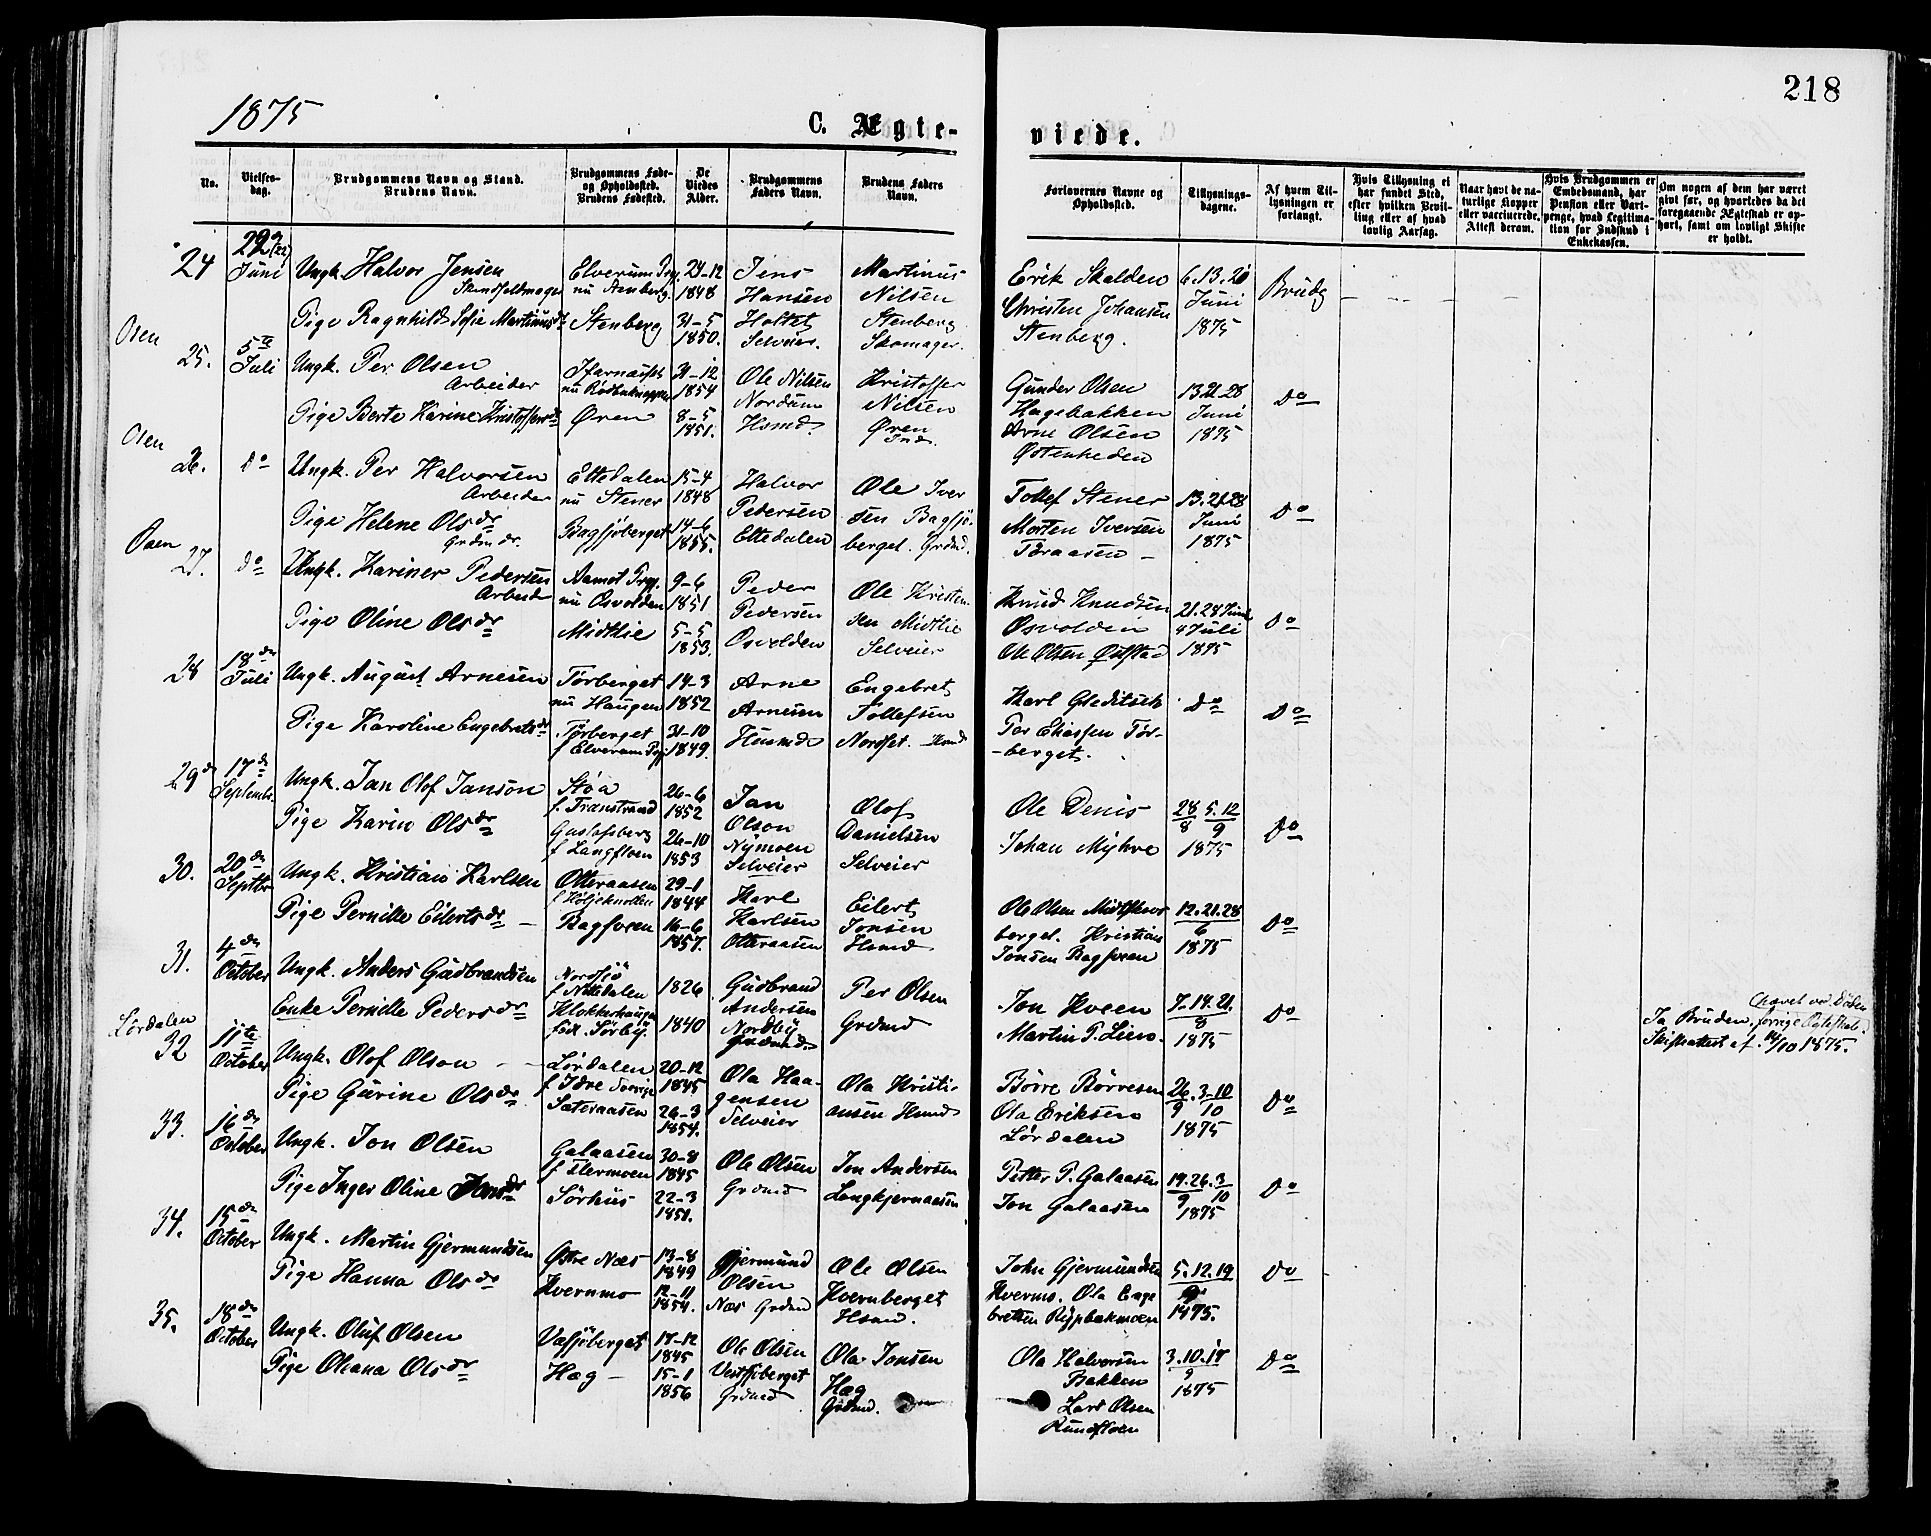 218
1875
C. Ægte-
viede.
No.
Vielses-
dag.
Brudgommens Navn og Stand.
Brudens Navn.
Brudgommens Føde-
og Opholdssted.
Brudens Fødested.
De
Viedes
Alder.
Brudgommens
Faders Navn.
Brudens Faders
Navn.
Forlovernes Navne og
Opholdssted.
Tillysnings-
dagene.
Af hvem Til-
lysningen er
forlangt.
Hvis Tillysning ei
har fundet Sted,
efter hvilken Bevil-
ling eller af hvad
lovlig Aarsag.
Naar havt de na-
turlige Kopper
eller vaccinerede.
Attest derom.
Hvis Brudgommen er
Embedsmand, har
Pension eller Vart-
penge, hvad Legitima-
tion for Indskud i
Enkekassen.
Om nogen af dem har været
givt før, og hvorledes da det
foregaaende Ægteskab er op-
hørt, samt om lovligt Skifte
er holdt.
24
Juni
Ungk. Halvor Jensen
Skindfeldmager
Pige Ragnhild Sofie Martinusdr
Elverum Prg.
nu Stenberg.
Stenberg
24-12
1848
31-5
1850.
Jens
Hansen
Holtet
Selveier.
Martinus
Nilsen
Stenberg
Skomager.
Erik Skalden
Christen Johansen
Stenberg.
6. 13. 20
Juni
1875
Brudg
Osen
25.
5te
Juli
Ungk. Per Olsen
Arbeider
Pige Berte Karine Kristoffersdr
Øren
31-12
1854
8-5
1851.
Ole Nilsen
Nordum
Hsmd.
Kristoffer
Nilsen
Øren
Gunder Olsen
Hagebakken
Arne Olsen
Østenheden
13. 21. 28
Juni
1875
Do
Osen
26.
Do
Ungk. Per Halvorsen
Arbeider
Pige Helene Olsdr
Grdm dr.
Ettedalen
nu Stener
Bagsjøberget
15-4
1848
14-6
1855.
Halvor
Pedersen
Ettedalen
Ole Iver
sen Bagsjø-
berget. Grdmd.
Tollef Stener
Morten Iversen
Tøraasen
13. 21. 28
Juni
1875
Do
Osen
27.
Do
Ungk. Kariner Pedersen
Arbeider
Pige Oline Olsdr
Aamot Prg.
nu Osvolden
Midtlie
9-6
1851
5-5
1853.
Peder
Pedersen
Osvolden
Ole Kristen
sen Midtlie
Selveier
Knud Knudsen
Osvolden
Ole Olsen Øststad
21. 28 Juni
4 Juli
1875
Do
28
18de
Juli
Ungk. August Arnesen
Pige Karoline Engebretsdr
Tørberget
nu Haugen
Tørberget
f. Elverum Prg.
14-3
1852
31-10
1849.
Arne
Arnesen
Husmd
Engebret
Tollefsen
Nordset. Hsmd
Karl Gleditsch
Per Eliassen Tør-
-berget.
Do
Do
29de
17de
Septembr.
Ungk. Jan Olof Janson
Pige Karin Olsdr
Støa
f. Transtrand
Gustafsberg
f. Langfloen
26-6
1852
26-10
1853
Jan
Olson
Nymoen
Selveier
Olof
Danielsen
Selveier
Ole Denis
Johan Myhre
28 5. 12
8 9
1875
Do
30.
20de
Septbr
Ungk. Kristian Karlsen
Pige Pernille Eilertsdr
Otteraasen
f. Høljeknollen
Bagfloen
29-1
1844
16-6
1857.
Karl
Karlsen
Otteraasen
Eilert
Jonsen
Hsmd
Ole Olsen Midtskov
berget. Kristian
Jonsen Bagfloen
12. 21. 28
6
1875
Do
31.
4de
October
Ungk. Anders Gudbrandsen
Enke Pernille Pedersdr
Nordsjø
f. Nittedalen
Klokkerhaugen
fød. Sørby.
1826
1840
Gudbrand
Andersen
Nordby
Grdmd.
Per Olsen
Grdmd
Jon Kveen
Martin P. Lien.
7. 14. 21.
8
1875
Do
Ja Bruden, forrige Egteskab
hævet ved Døden
Skifteattest af 14/10 1875.
Lørdalen
32
11te
October
Ungk. Olof Olson
Pige Gurine Olsdr
Lørdalen
f. Idre Sverige
Sæteraasen
20-12
1845
26-3
1854.
Ola Haa-
gensen
Selveier
Ola Kristi-
ansen Hsmd
Børre Børresen
Ola Eriksen
Lørdalen
26. 3-10
9 10
1875
Do
33.
16de
October
Ungk. Jon Olsen
Pige Inger Oline Jonsdr
Galaasen
f. Flermoen
Sørhus
30-8
1845
22-3
1851.
Ole Olsen
Grdmd
Jon Andersen
Langkjernaasen
Petter P. Galaasen
Jon Galaasen
19. 26. 3
9 10
1875
Do
34.
15de
October
Ungk. Martin Gjermundsen
Pige Hanna Olsdr
Østre Næs
Kvernmo
13-8
1849
12-11
1854.
Gjermund
Olsen
Næs Grdmd
Ole Olsen
Kvernberget
Hsmd.
John Gjermundsen
Kvernmo. Ola Enge
bretsen Rypbakmoen
5. 12. 19
9
1875.
Do
35.
18de
October
Ungk. Oluf Olsen
Pige Oleana Olsdr
Væsjøberget
Hæg
17-12
1845
15-1
1856
Ole Olsen
Vestsjøberget
Grdmd
Ola Jonsen
Hæg
Grdmd.
Ola Halvorsen
Bakken
Lars Olsen
Rundfloen
3. 10. 17
9
1875
Do